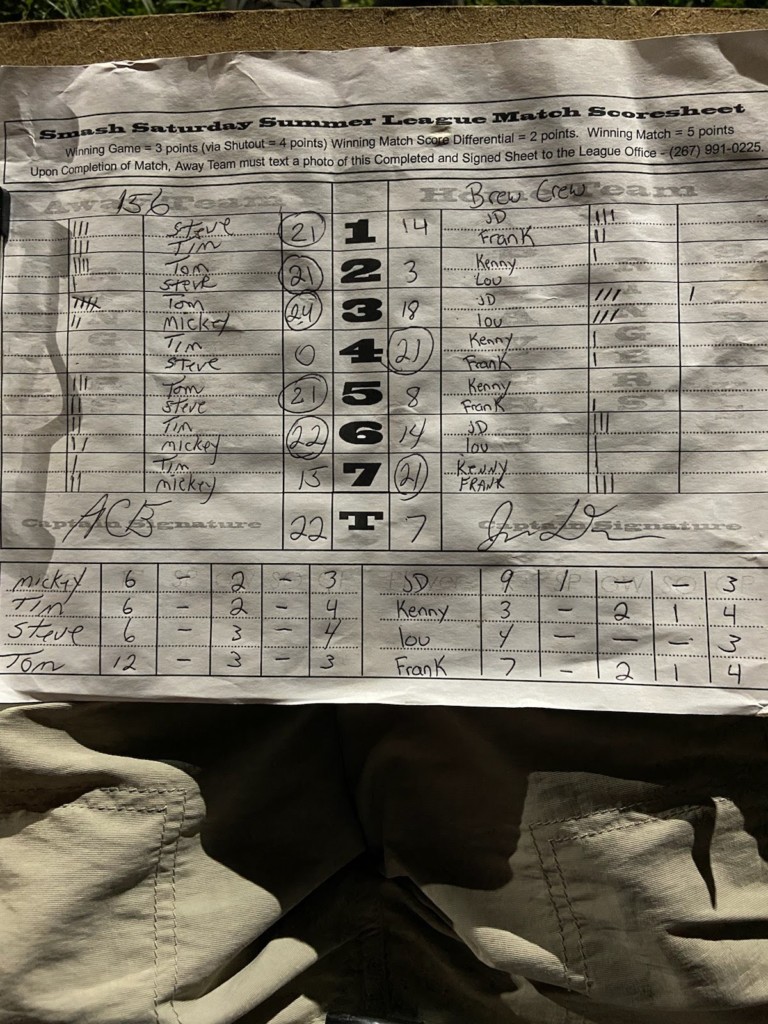 Smash Saturday Summer League Match Scoresheet
Winning Game = 3 points (via Shutout = 4 points) Winning Match Score Differential = 2 points. Winning Match = 5 points
Upon Completion of Match, Away Team must text a photo of this Completed and Signed Sheet to the League Office - (267) 991-0225.
Away Team 156 Home Team Brew Crew
Steve 21 1 14 JD
Tim Frank
Tom 21 2 3 Kenny
Steve Lou
Tom 24 3 18 JD
Mickey lou
Tim 0 4 21 Kenny
Steve Frank
Tom 21 5 8 Kenny
Steve Frank
Tim 22 6 14 JD
mickey lou
Tim 15 7 21 KENNY
mickey FRANK
Captain Signature ACB 22 T 7 Captain Signature
mickey 6 - 2 - 3 JD 9 1 - - 3
Tim 6 - 2 - 4 Kenny 3 - 2 1 4
Steve 6 - 3 - 4 lou 4 - - - 3
Tom 12 - 3 - 3 Frank 7 - 2 1 4